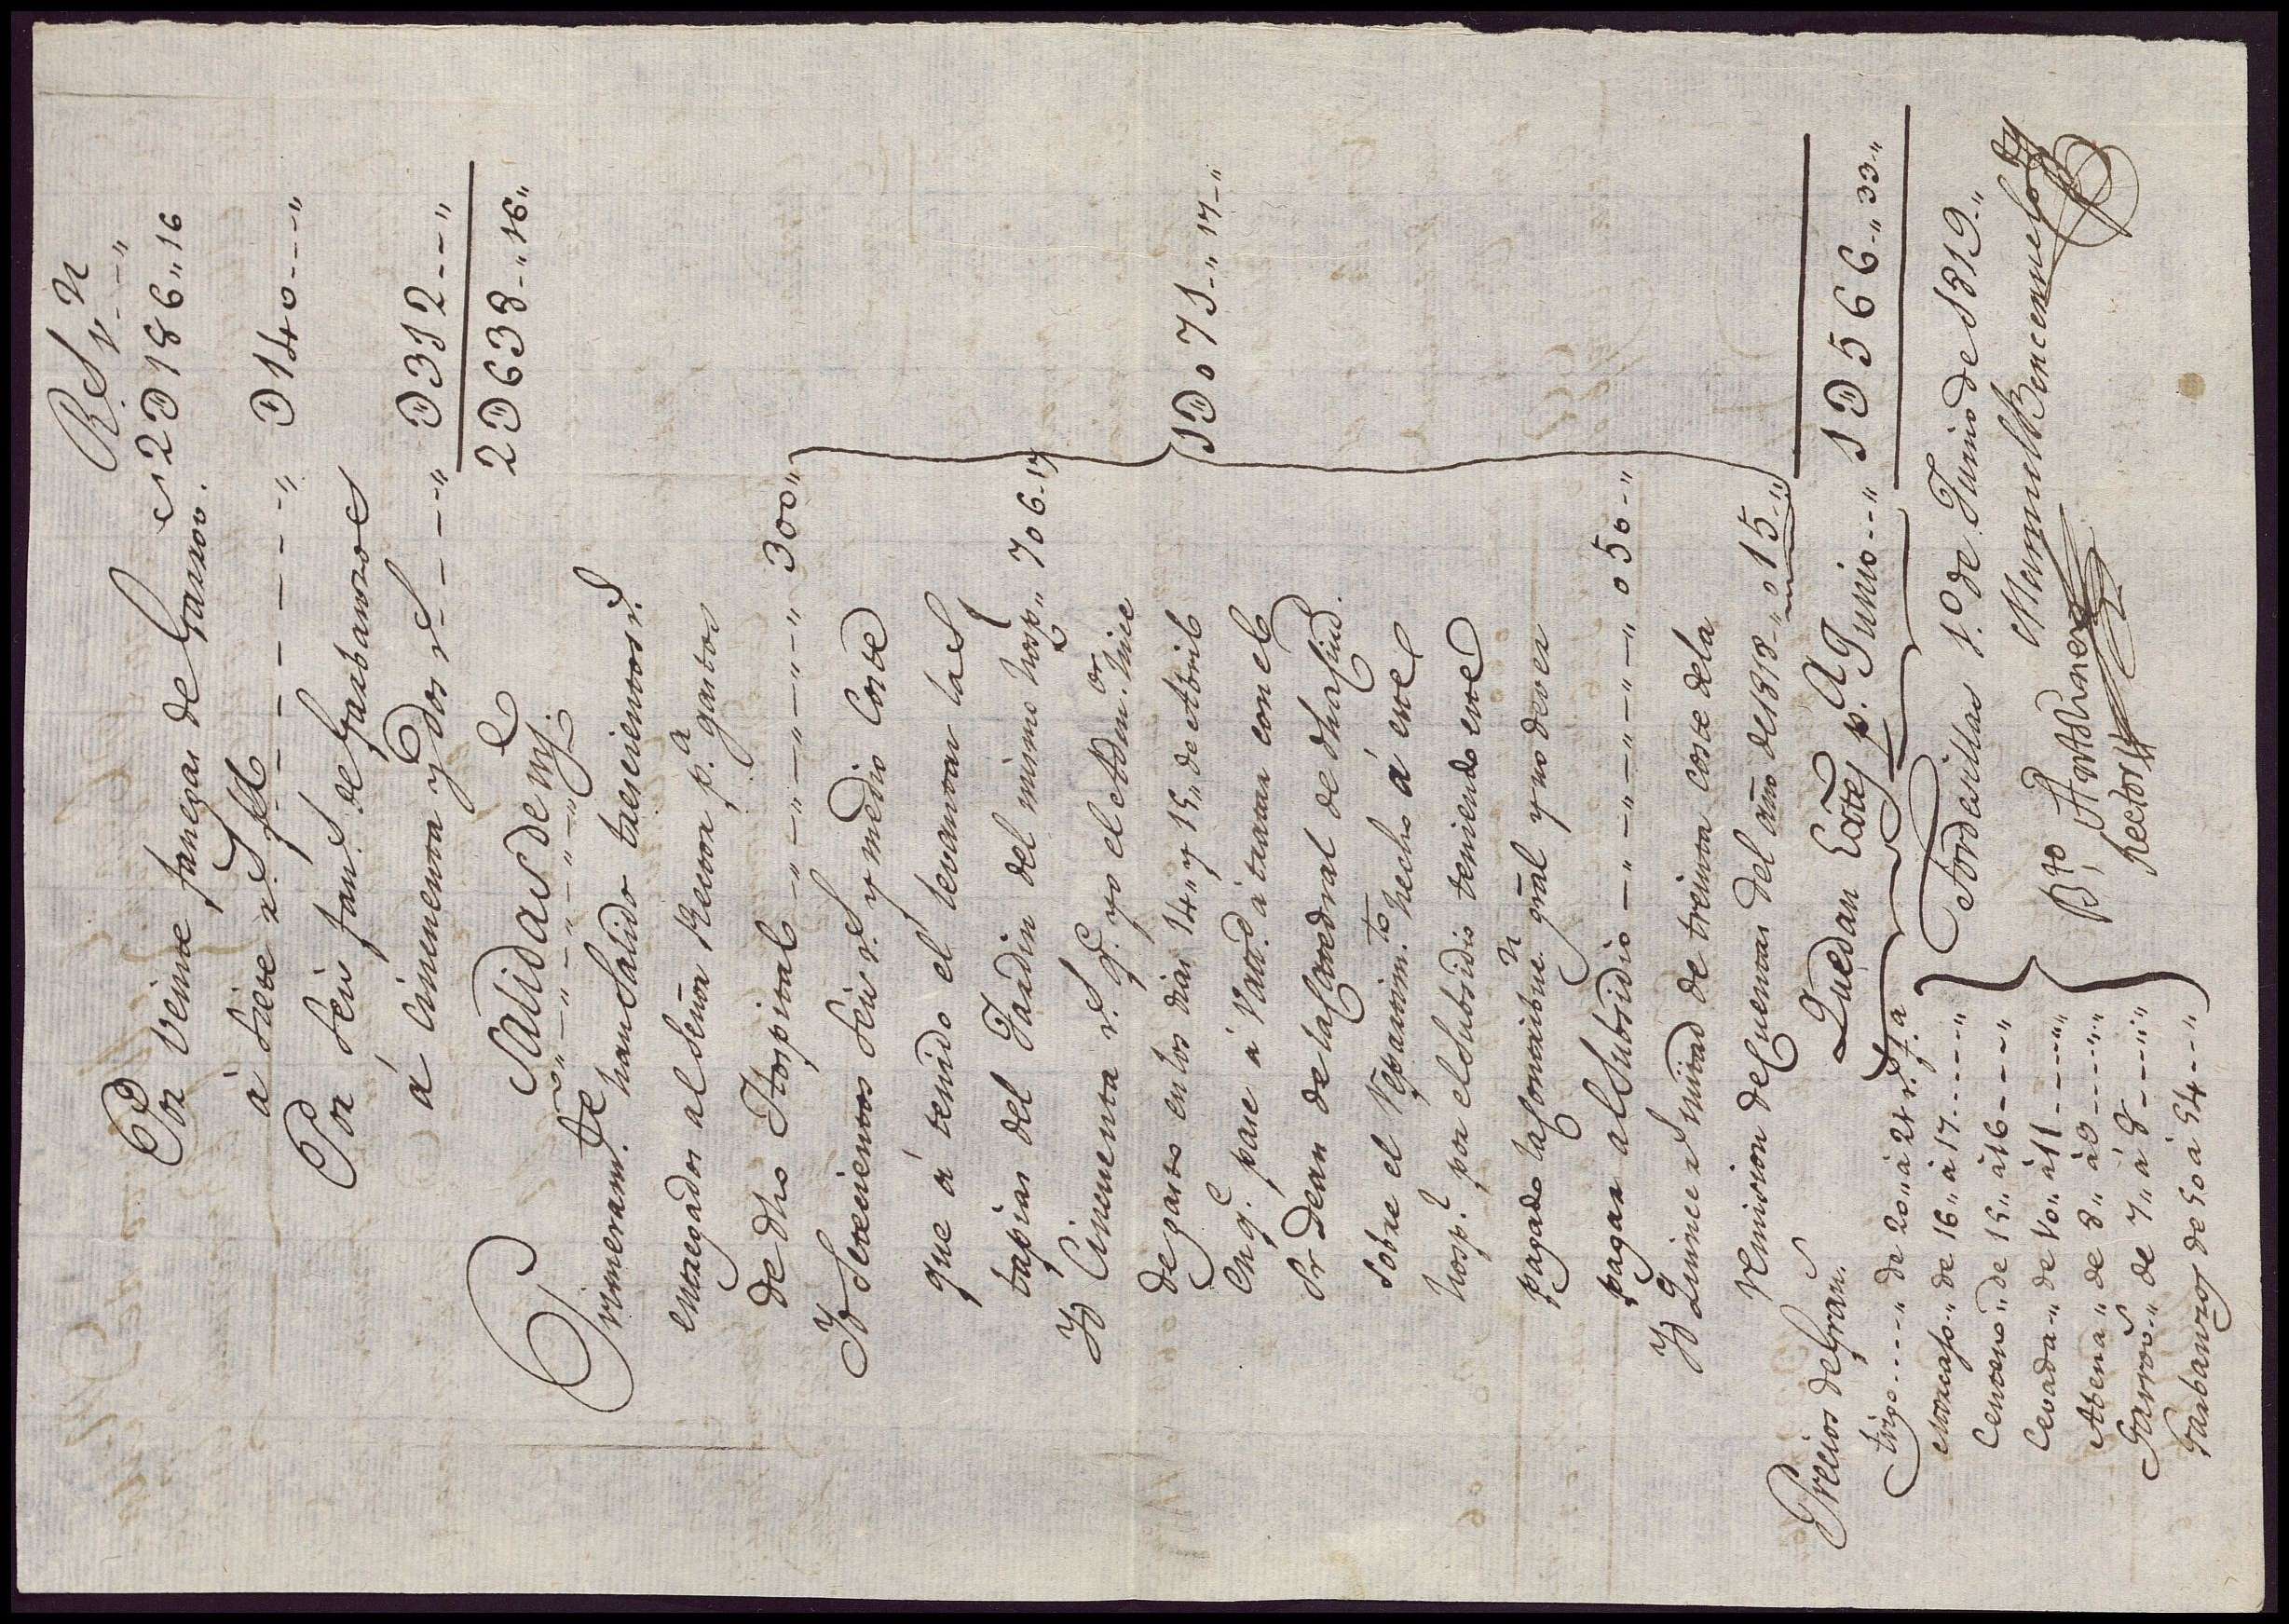 Rs. vn
2D186,,16
Por Veinte fanegas de Garrov.
à Siete rs. f.
D140---,,
Por Seis fans. de Garbanzos
á Cincuenta y dos rs. - - - -,, D312--,,
2D638-,,16,,
Salidas de mrs.
Primeramte. han Salido trescientos rs.
entregados al Señor Rector p.a gastos
de dho Hospital -,,-,,-,,-,,-,, 300,,
Yt Setecientos Seis rs. y medio Coste
que á tenido el levantar las
tapias del Jardin del mismo hosp.l,, 706-17
Yt Cincuenta rs. qe. yo el Admor. hice
de gasto en los dias 14,, y 15,, de Abril
en qe. pase a Vallid. á tratar con el
Sr Dean de la Catedral de dha Ciud.
Sobre el Repartimto. hecho á este
hosp.l por el Subsidio teniendo este
pagado la Contribucn. gral y no dever
pagar al Subsidio -,,-,,-,,-,,-,, 050-,,
Yt Quince rs mitad de treinta coste dela
remision de Cuentas del año de 1818-,, 015-,,
1D071-,,17-,,
Quedan Exttes p.a Junio--,, 1D566-,,33-,,
Precios de Grans.
trigo----,, de 20,, à 24 rs. f.a
Morcajo-,, de 16,, à 17-----,,
Centeno-,, de 15,, à 16----,,
Cevada-,, de 10,, à 11-----,,
Abena-,, de 8,, à 9-----,,
Garrovs-,, de 7,, à 8-----,,
Garbanzos de 50 à 54---,,
Tordesillas 1.o de Junio de 1819-,,
Manuel Bencenuelo
Bto
Rector